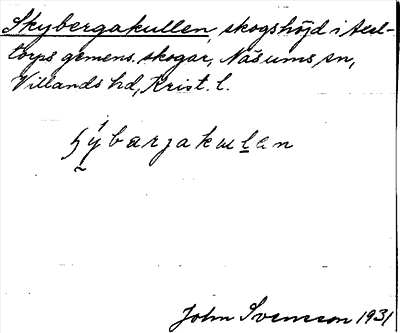 Skybergakullen, skogshöjd i Axel-
torps gemens. skogar, Näsums sn,
Villands hd, Krist. l.
ʃýbarjakulan
John Svensson 1931